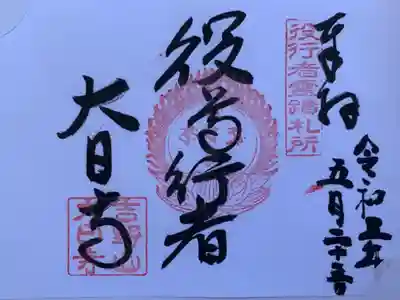 奉拝
役行者霊蹟札所
令和
五月二十
役行者
大日寺
吉野山
大日寺